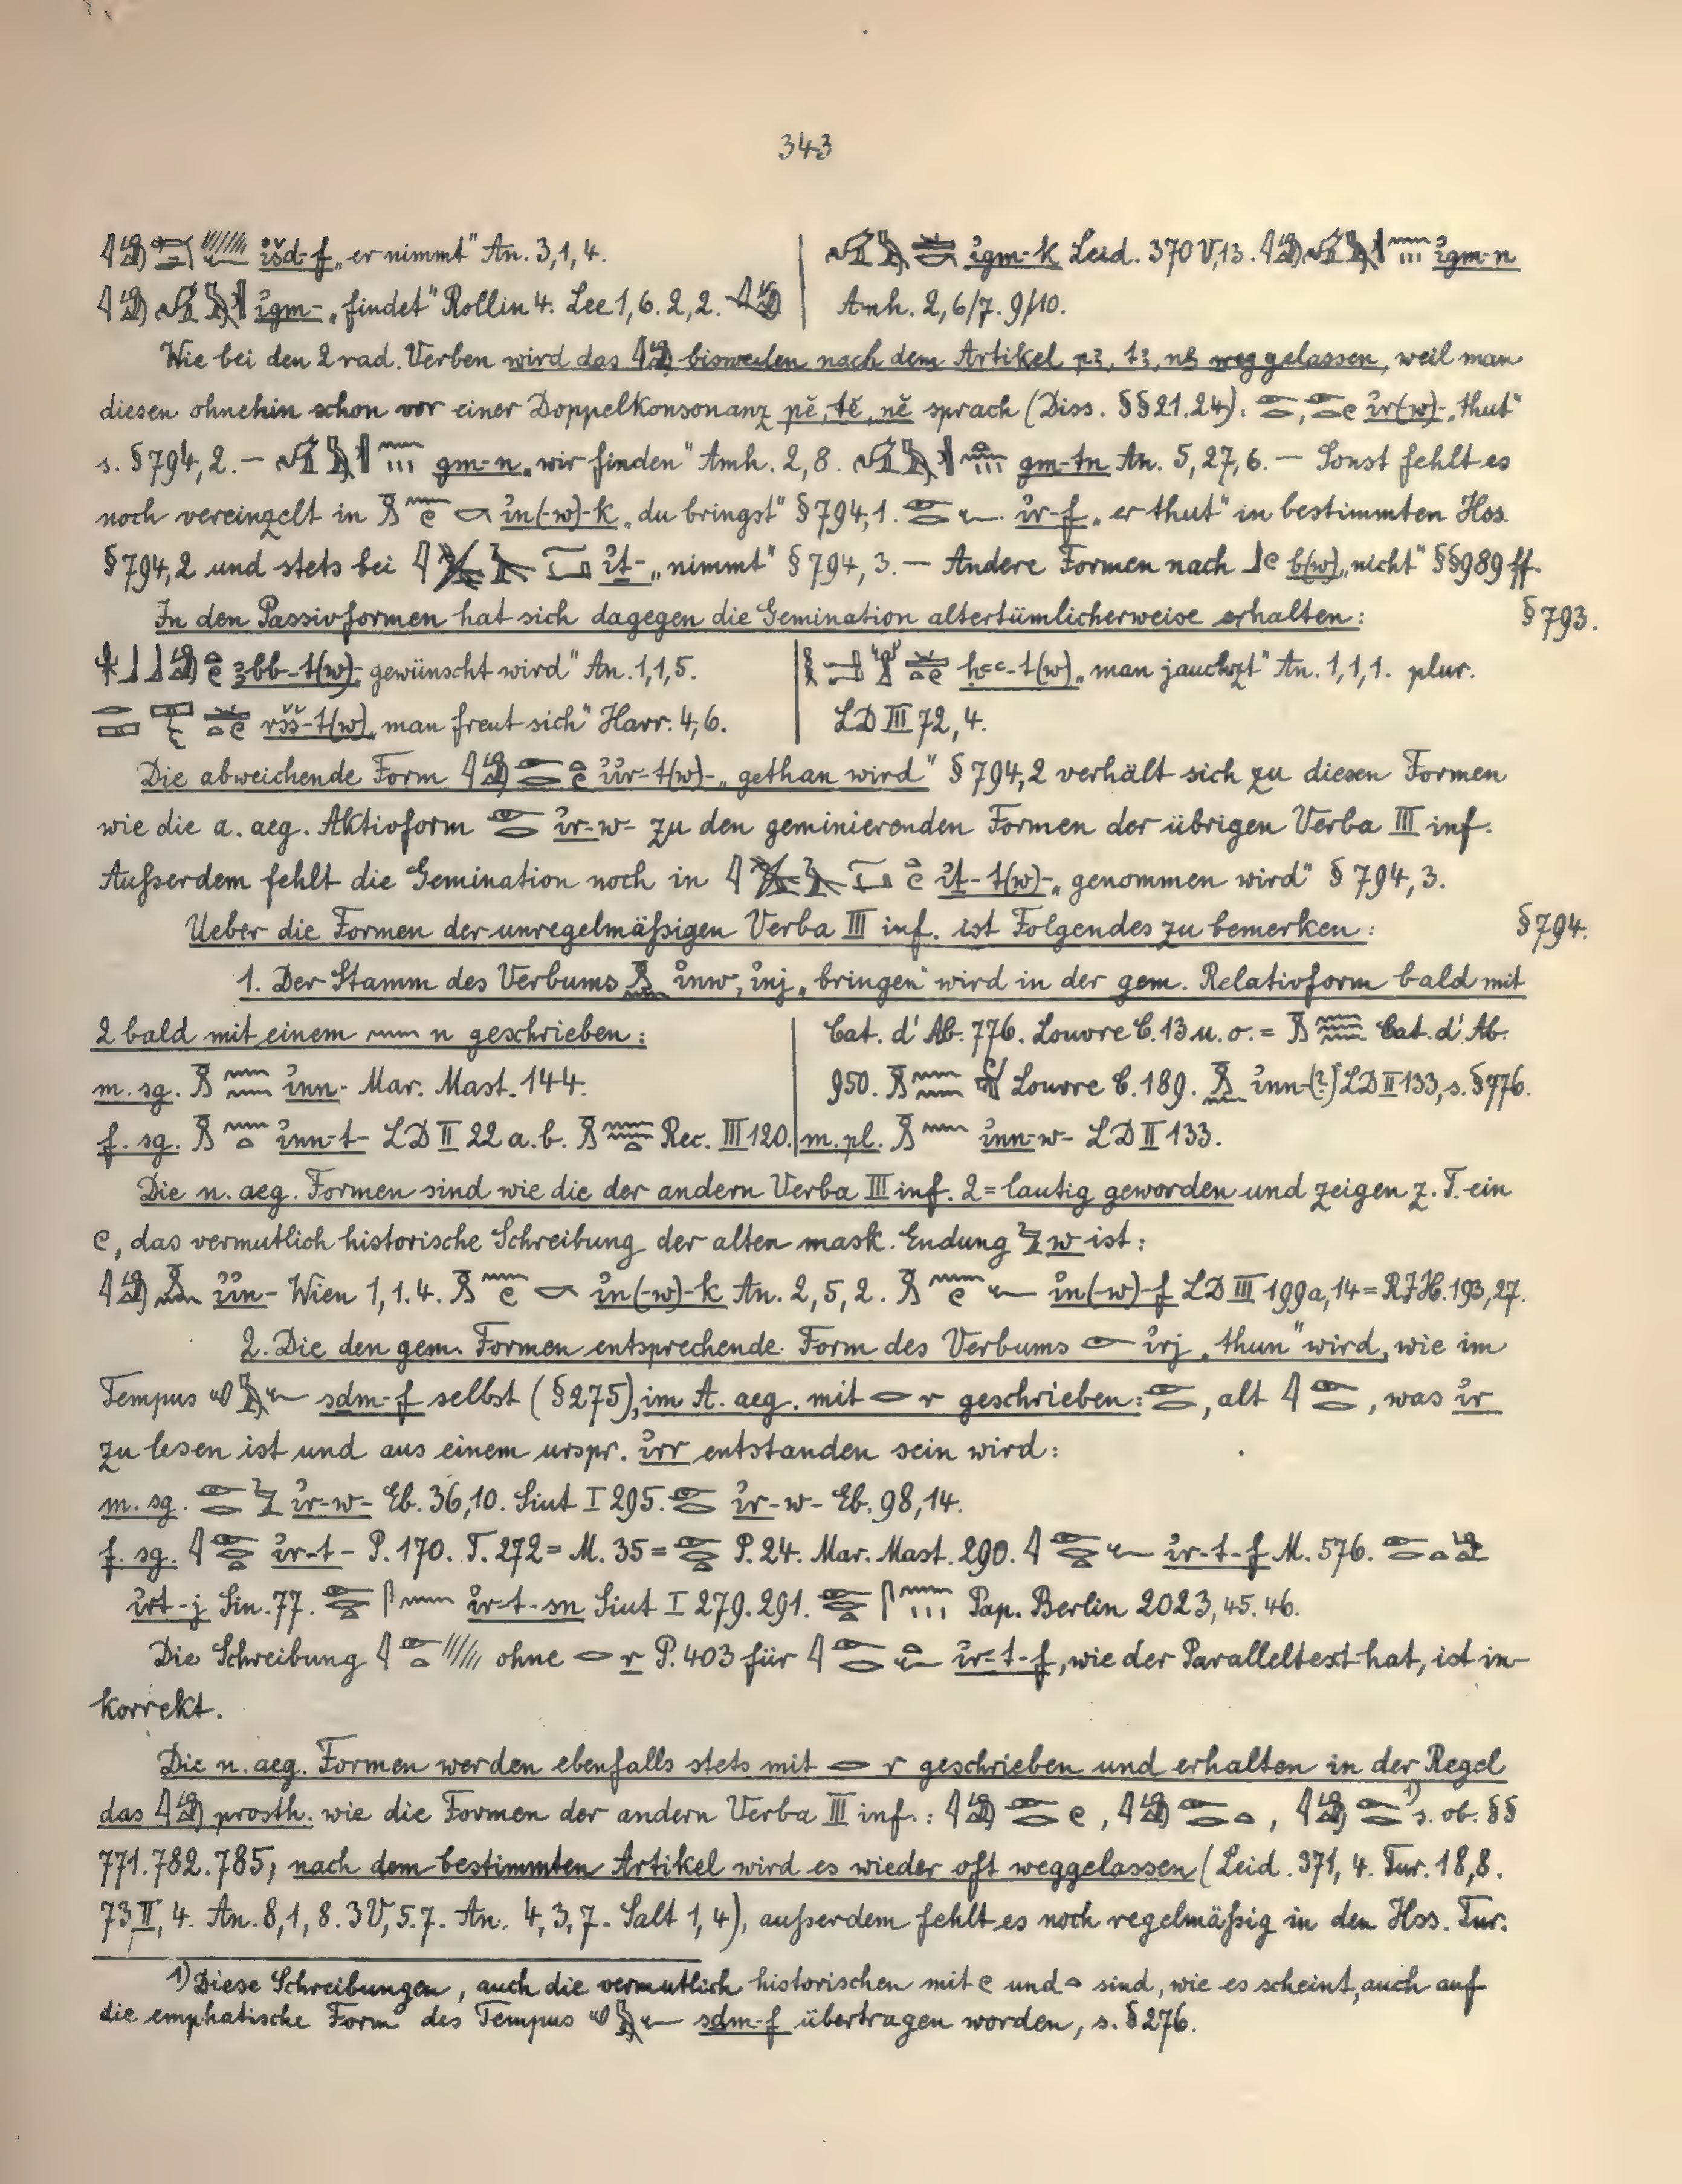 343
i͗šd-f „er nimmt“ An. 3,1,4.
i͗gm- „findet“ Rollin 4. Lee 1,6. 2,2.
i͗gm-k Leid. 370 V,13. i͗gm-n
Amh. 2,6/7. 9/10.
Wie bei den 2 rad. Verben wird das bisweilen nach dem Artikel pꜣ, tꜣ, nꜣ weggelassen, weil man
diesen ohnehin schon vor einer Doppelkonsonanz pĕ, tĕ, nĕ sprach (Diss. §§ 21. 24): i͗r(-w)- „thut“
s. § 794, 2. — gm-n „wir finden“ Amh. 2, 8. gm-tn An. 5, 27, 6. — Sonst fehlt es
noch vereinzelt in i͗n(-w)-k „du bringst“ § 794, 1. i͗r-f „er thut“ in bestimmten Hss.
§ 794, 2 und stets bei i͗t- „nimmt“ § 794, 3. — Andere Formen nach b(w) „nicht“ §§ 989 ff.
In den Passivformen hat sich dagegen die Gemination altertümlicherweise erhalten: § 793.
ꜣbb-t(w)- gewünscht wird“ An. 1,1,5.
ršš-t(w) „man freut sich“ Harr. 4,6.
hꜥꜥ-t(w) „man jauchzt“ An. 1,1,1. plur.
LD III 72, 4.
Die abweichende Form i͗i͗r-t(w)- „gethan wird“ § 794, 2 verhält sich zu diesen Formen
wie die a. aeg. Aktivform i͗r-w- zu den geminierenden Formen der übrigen Verba III inf.
Außerdem fehlt die Gemination noch in i͗t-t(w)- „genommen wird“ § 794, 3.
Ueber die Formen der unregelmäßigen Verba III inf. ist Folgendes zu bemerken: § 794.
1. Der Stamm des Verbums i͗nw, i͗nj „bringen“ wird in der gem. Relativform bald mit
2 bald mit einem n geschrieben:
m. sg. i͗nn- Mar. Mast. 144.
f. sg. i͗nn-t- LD II 22 a. b. Rec. III 120.
Cat. d'Ab. 776. Louvre C. 13 u. o. = Cat. d'Ab.
950. Louvre C. 189. i͗nn-(?) LD II 133, s. § 776.
m. pl. i͗nn-w- LD II 133.
Die n. aeg. Formen sind wie die der andern Verba III inf. 2=lautig geworden und zeigen z. T. ein
, das vermutlich historische Schreibung der alten mask. Endung w ist:
i͗i͗n- Wien 1,1.4. i͗n(-w)-k An. 2, 5, 2. i͗n(-w)-f LD III 199a, 14 = RJH. 193, 27.
2. Die den gem. Formen entsprechende Form des Verbums i͗rj „thun“ wird, wie im
Tempus sdm-f selbst (§ 275), im A. aeg. mit r geschrieben: , alt , was i͗r
zu lesen ist und aus einem urspr. i͗rr entstanden sein wird:
m. sg. i͗r-w- Eb. 36,10. Siut I 295. i͗r-w- Eb. 98,14.
f. sg. i͗r-t- P. 170. T. 272 = M. 35 = P. 24. Mar. Mast. 290. i͗r-t-f M. 576.
i͗rt-j Sin. 77. i͗r-t-sn Siut I 279. 291. Pap. Berlin 2023, 45. 46.
Die Schreibung ohne r P. 403 für i͗r-t-f, wie der Paralleltext hat, ist in-
korrekt.
Die n. aeg. Formen werden ebenfalls stets mit r geschrieben und erhalten in der Regel
das prosth. wie die Formen der andern Verba III inf.: , , 1) s. ob. §§
771. 782. 785; nach dem bestimmten Artikel wird es wieder oft weggelassen (Leid. 371, 4. Tur. 18,8.
73 II, 4. An. 8,1,8. 3 V, 5. 7. An. 4, 3, 7. Salt 1, 4), außerdem fehlt es noch regelmäßig in den Hss. Tur.
1) Diese Schreibungen, auch die vermutlich historischen mit und sind, wie es scheint, auch auf
die emphatische Form des Tempus sdm-f übertragen worden, s. § 276.